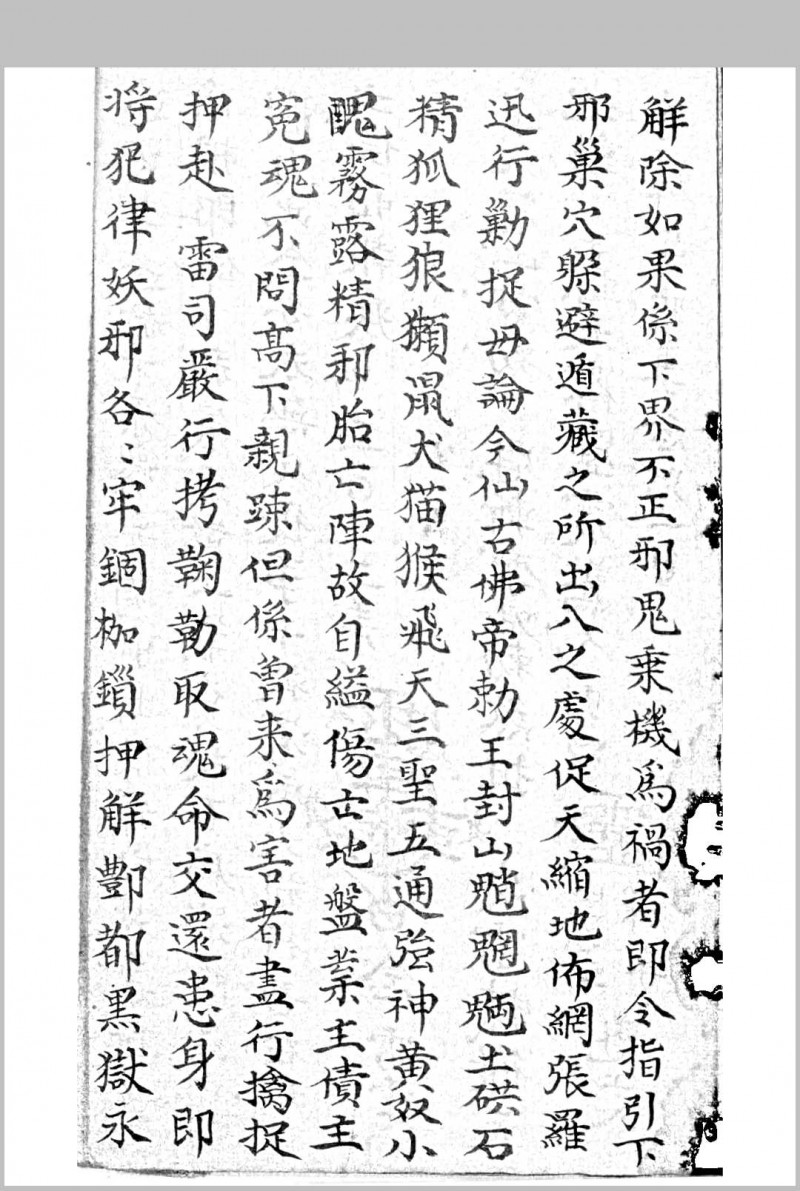 解除如果係下界不正邪鬼乗機為禍者即令指引下
邪巢穴躲避遁藏之所出入之處促天縮地佈網張羅
迅行勦捉毋論今仙古佛帝勅王封山魈魍魎土硔石
精狐狸狼獺鼠犬猫猴飛天三聖五通強神黃奴小
醜霧露精邪胎亡陣故自縊傷亡地盤業主債主
冤魂不問高下親踈但係曽来為害者盡行擒捉
押赴　雷司嚴行拷鞫勒取魂命交還患身即
将犯律妖邪各〻牢錮枷鎖押解酆都黑獄永